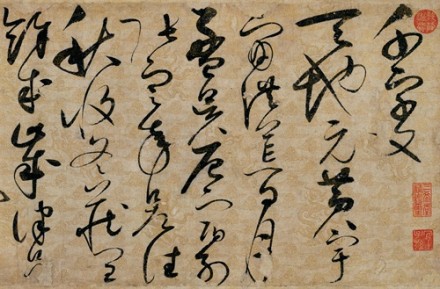 千字文
天地元黃宇
宙洪荒日月
盈昃辰宿列
張寒來暑往
秋收冬藏閏
餘成歲律呂